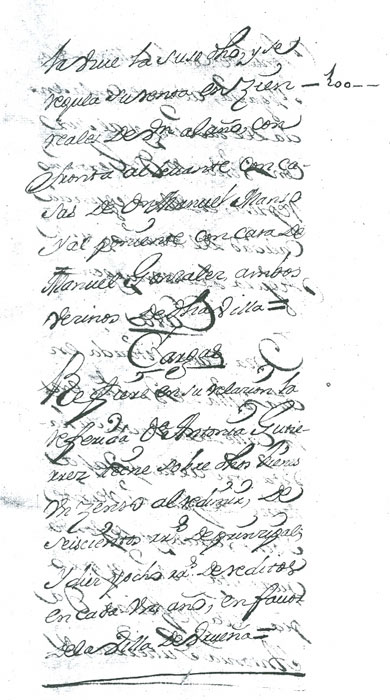 la vive la suso dha, y se
regula su renta en zien — 100 —
reales de Vn al año, con
fronta al levante con ca-
sas de Dn Manuel Manso
y al poniente con casa de
Manuel Gonzalez, ambos
vezinos de dha Villa =
Cargas
en su relazion la
referida Dª Antonia Gutie-
rrez tiene sobre dhos bienes
un zenso al redimir, de
seiscientos rrs de prinzipal,
y diez y ocho rrs de reditos
en cada un año, en favor
de la Villa de Dueña =